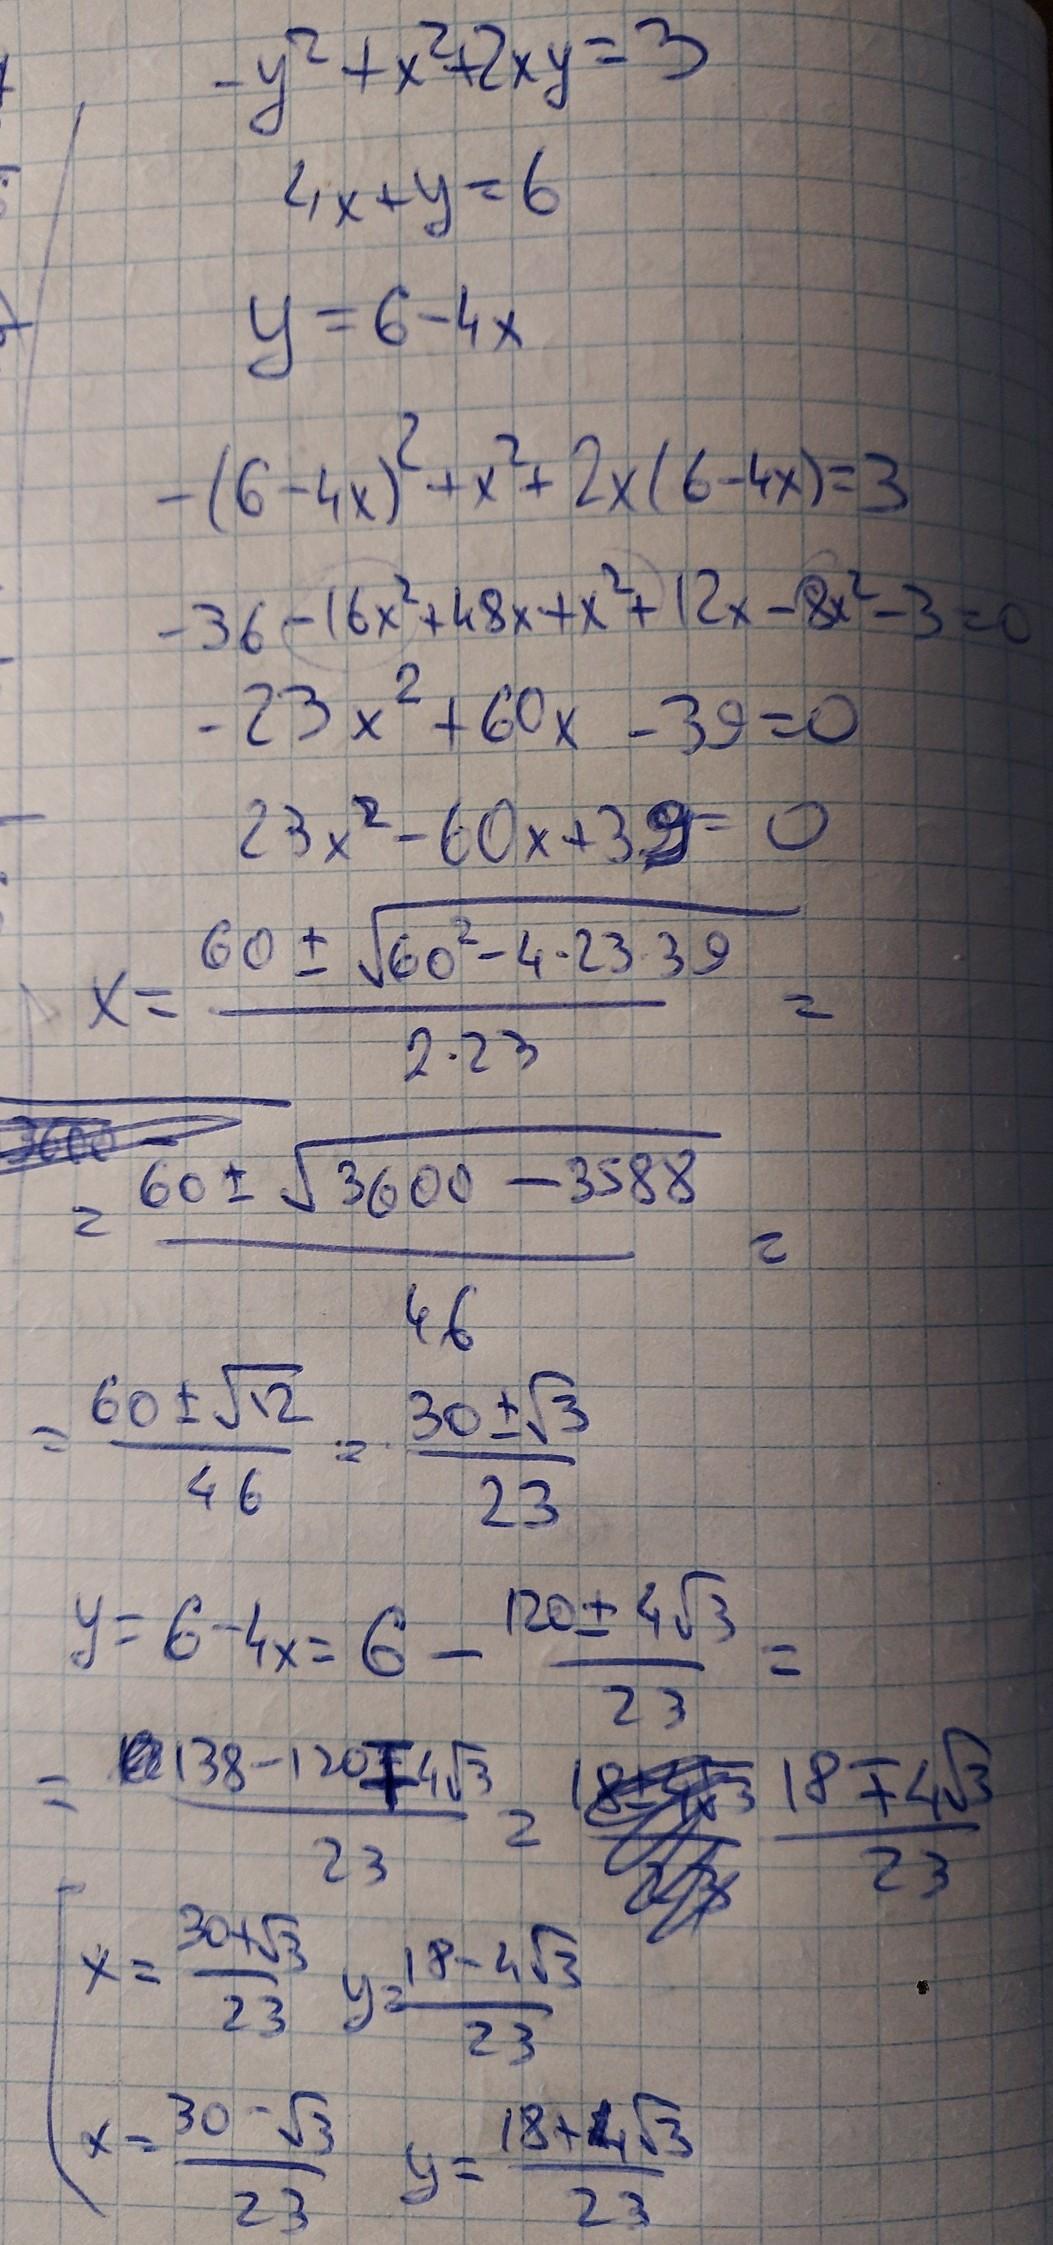 -y²+x²+2xy=3
4x+y=6
y=6-4x
-(6-4x)²+x²+2x(6-4x)=3
-36-16x²+48x+x²+12x-8x²-3=0
-23x²+60x-39=0
23x²-60x+39=0
x= (60±√(60²-4·23·39))/(2·23) =
= (60±√(3600-3588))/46 =
= (60±√12)/46 = (30±√3)/23
y=6-4x=6-(120±4√3)/23 =
= (138-120∓4√3)/23 = (18∓4√3)/23
x= (30+√3)/23 y= (18-4√3)/23
x= (30-√3)/23 y= (18+4√3)/23